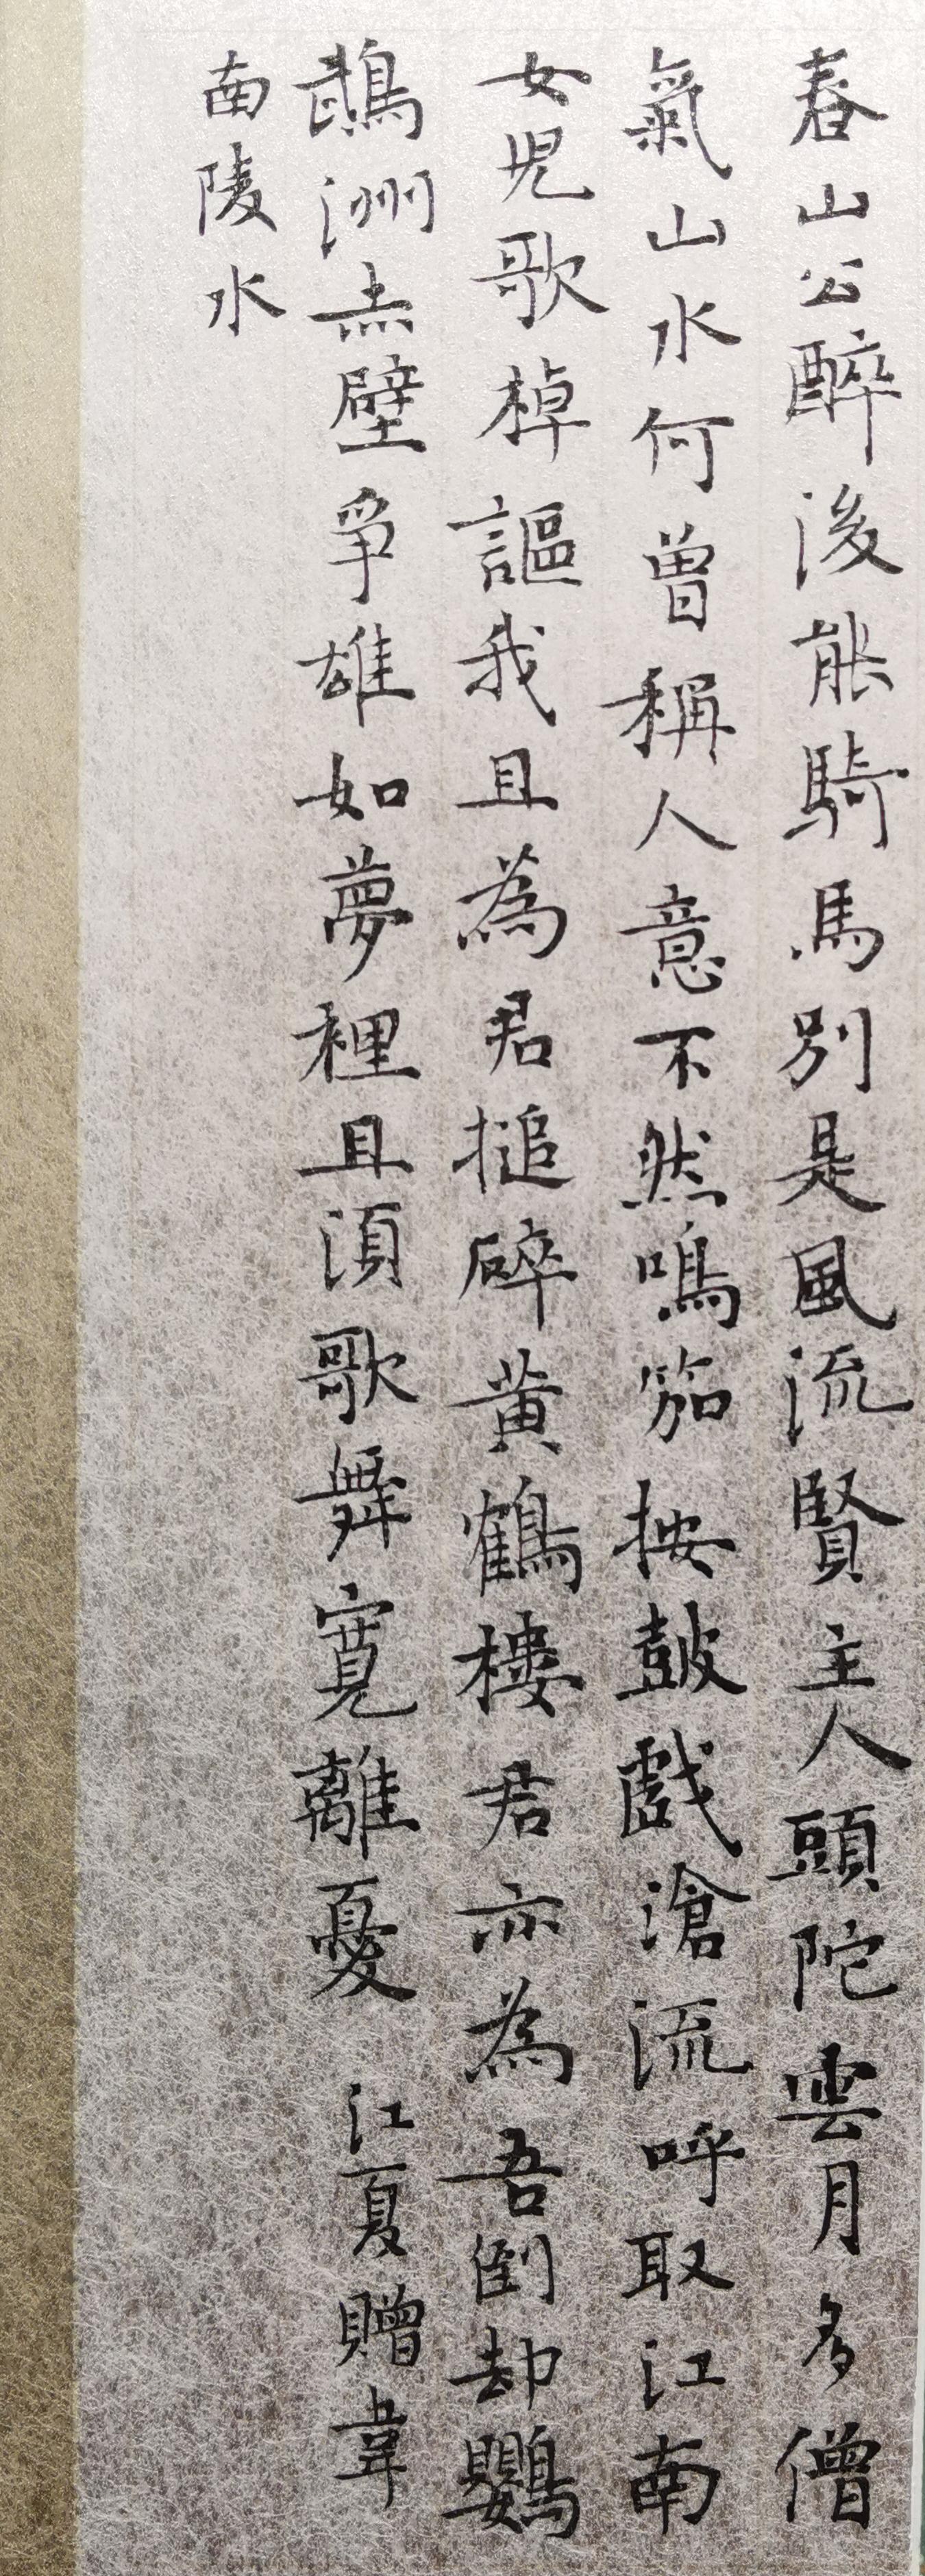 春山公醉後能騎馬別是風流賢主人頭陀雲月多僧
氣山水何曾稱人意不然鳴笳按鼓戲滄流呼取江南
女児歌棹謳我且為君搥碎黄鶴樓君亦為吾倒却鸚
鵡洲赤壁爭雄如夢裡且須歌舞寬離憂 江夏贈韋
南陵水